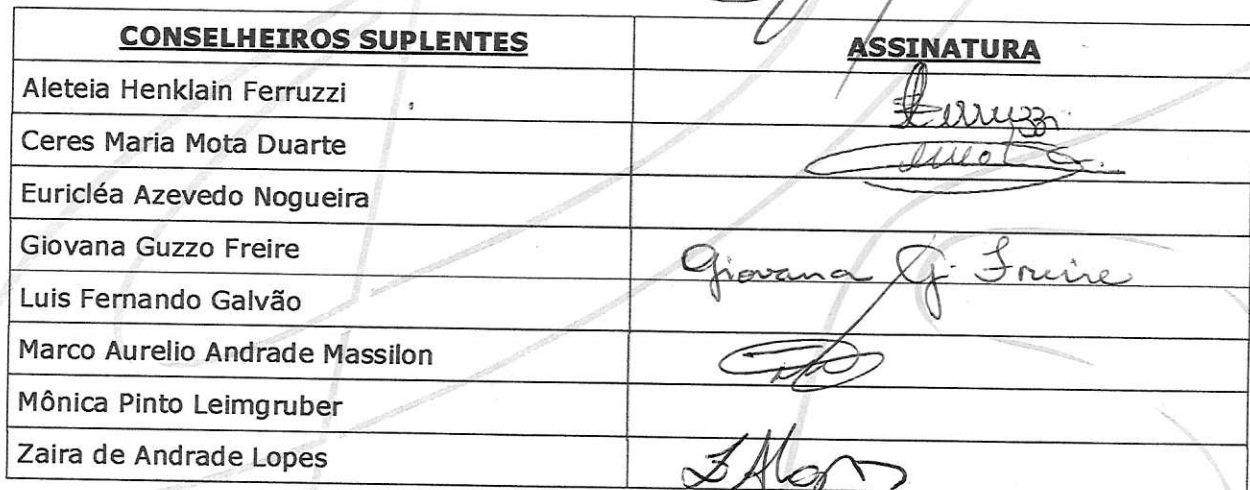 CONSELHEIROS SUPLENTES ASSINATURA
Aleteia Henklain Ferruzzi Ferruzzi
Ceres Maria Mota Duarte
Euricléa Azevedo Nogueira
Giovana Guzzo Freire Giovana G. Freire
Luis Fernando Galvão
Marco Aurelio Andrade Massilon
Mônica Pinto Leimgruber
Zaira de Andrade Lopes